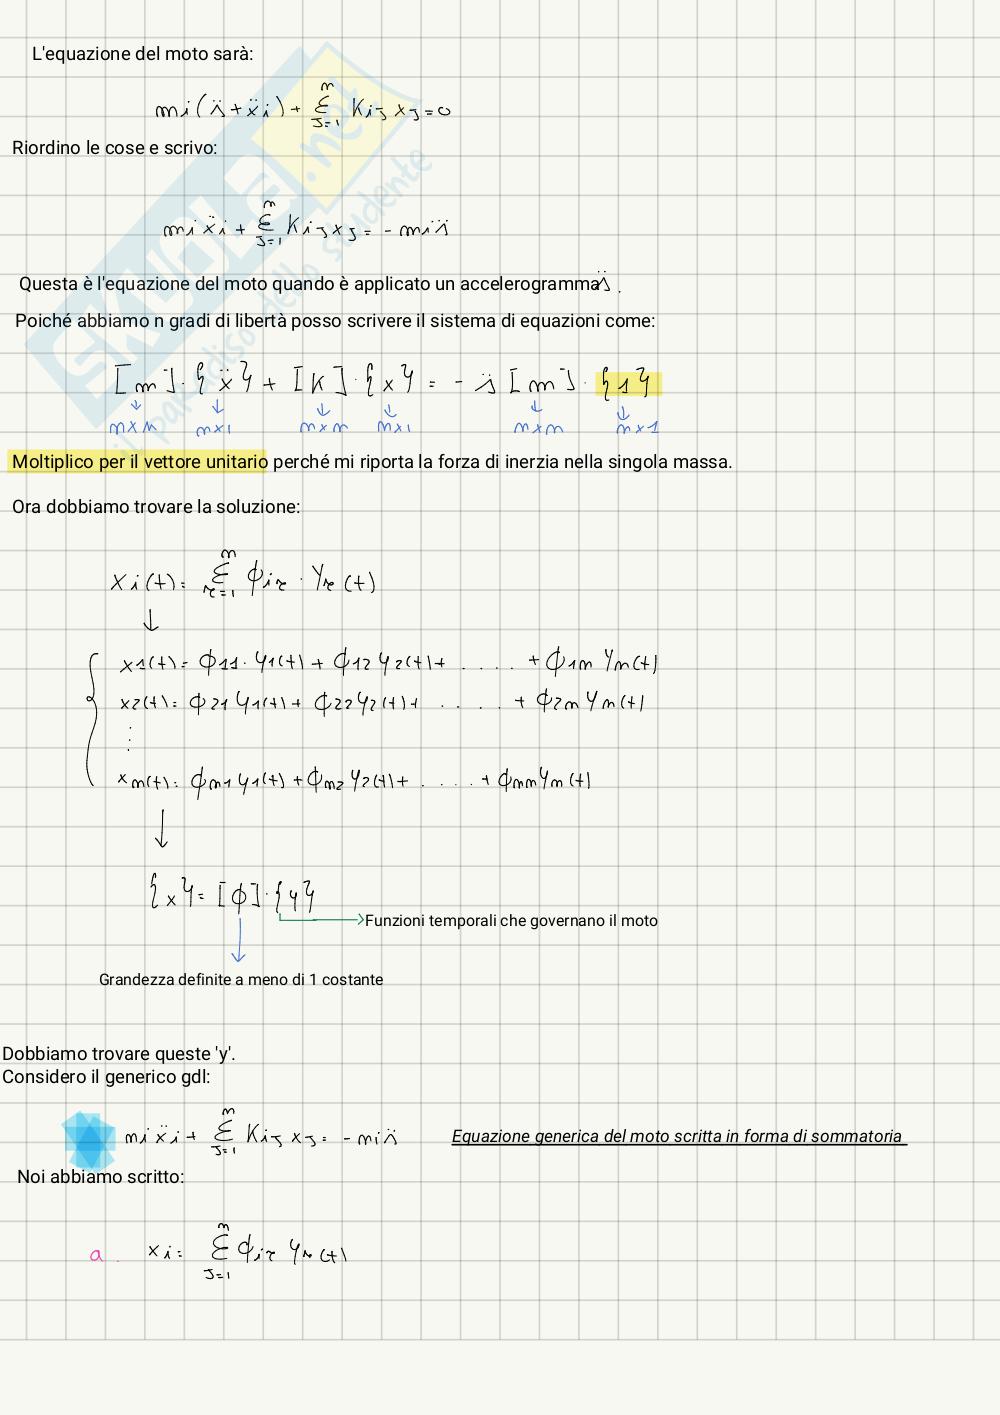 L'equazione del moto sarà:
mi(s̈+ẍi)+ Σ(J=1, n) KiJ xJ=0
Riordino le cose e scrivo:
mi ẍi + Σ(J=1, n) KiJ xJ = - mi s̈
Questa è l'equazione del moto quando è applicato un accelerogramma s̈ .
Poiché abbiamo n gradi di libertà posso scrivere il sistema di equazioni come:
[m]·{ẍ} + [K]·{x} = - s̈ [m]·{1}
↓ ↓ ↓ ↓ ↓ ↓
nxn nx1 nxn nx1 nxn nx1
Moltiplico per il vettore unitario perché mi riporta la forza di inerzia nella singola massa.
Ora dobbiamo trovare la soluzione:
xi(t)= Σ(r=1, n) ϕir · Yr(t)
↓
x1(t)= ϕ11·y1(t) + ϕ12 y2(t)+ . . . . . + ϕ1n yn(t)
x2(t)= ϕ21 y1(t)+ ϕ22 y2(t)+ . . . . . + ϕ2n yn(t)
⋮
xn(t)= ϕn1 y1(t) + ϕn2 y2(t)+ . . . . . + ϕnn yn(t)
↓
{x}= [ϕ]·{y}
Funzioni temporali che governano il moto
Grandezza definite a meno di 1 costante
Dobbiamo trovare queste 'y'.
Considero il generico gdl:
mi ẍi + Σ(J=1, n) KiJ xJ= - mi s̈ Equazione generica del moto scritta in forma di sommatoria
Noi abbiamo scritto:
a. xi= Σ(J=1, n) ϕir yr(t)
SKUOLA.net
il paradiso dello studente